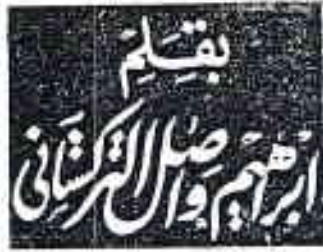 بقلم
ابراهيم واصل التركستاني